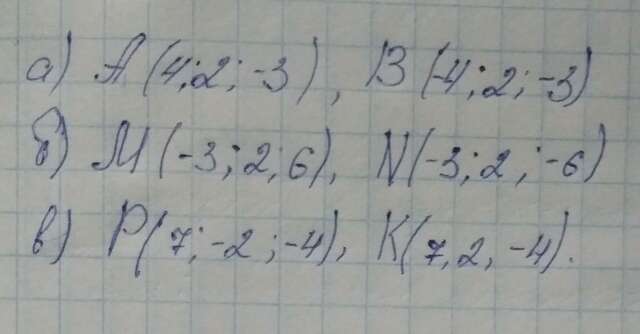 а) A (4; 2; -3), B (-4; 2; -3)
б) M (-3; 2; 6), N(-3; 2; -6)
в) P(7; -2; -4), K(7, 2, -4).